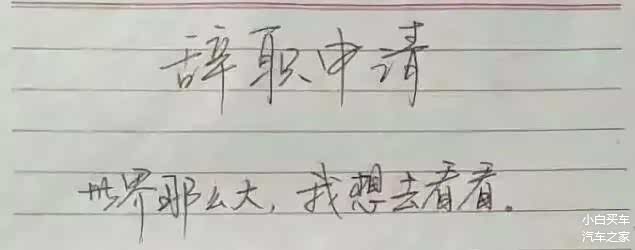 辞职申请
世界那么大，我想去看看。
小白买车
汽车之家